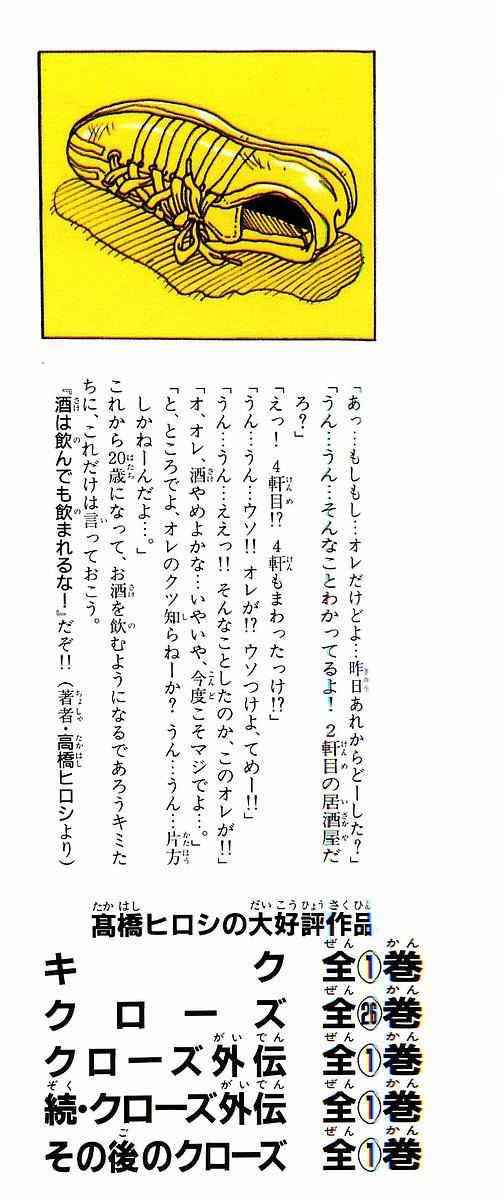 「あっ…もしもし…オレだけどよ…昨日あれからどーした？」
「うん…うん…そんなことわかってるよ！　2軒目の居酒屋だ
ろ？」
「えっ！　4軒目!?　4軒もまわったっけ!?」
「うん…うん…ウソ!!　オレが!?　ウソつけよ、てめー!!」
「うん…うん…ええっ!!　そんなことしたのか、このオレが!!」
「オ、オレ、酒やめよかな…いやいや、今度こそマジでよ…。」
「と、ところでよ、オレのクツ知らねーか？　うん…うん…片方
しかねーんだよ…。」
これから20歳になって、お酒を飲むようになるであろうキミた
ちに、これだけは言っておこう。
『酒は飲んでも飲まれるな！』だぞ!!（著者・高橋ヒロシより）
髙橋ヒロシの大好評作品
キク　全①巻
クローズ　全㉖巻
クローズ外伝　全①巻
続・クローズ外伝　全①巻
その後のクローズ　全①巻